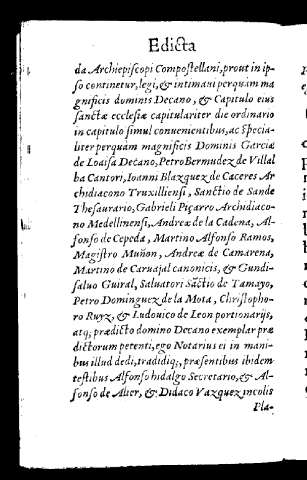 Edicta
da Archiepiscopi Compostellani, prout in ip-
so continetur, legi, & intimani perquàm ma
gnificis dominis Decano, & Capitulo eius
sanctæ ecclesiæ capitulariter die ordinario
in capitulo simul conuenientibus, ac specia-
liter perquàm magnificis Dominis Garcia
de Loaisa Decano, Petro Bermudez de Villal
ba Cantori, Ioanni Blazquez de Caceres Ar
chidiacono Truxilliensi, Sanctio de Sande
Thesaurario, Gabrieli Piçarro Archidiaco-
no Medellinensi, Andreæ de la Cadena, Al-
fonso de Cepeda, Martino Alfonso Ramos,
Magistro Muñon, Andreæ de Camarena,
Martino de Caruajal canonicis, & Gundi-
saluo Guiral, Saluatori Sãctio de Tamayo,
Petro Dominguez de la Mota, Christopho-
ro Ruyz, & Ludouico de Leon portionarijs,
atq; prædicto domino Decano exemplar præ
dictorum petenti, ego Notarius ei in mani-
bus illud dedi, tradidiq;, præsentibus ibidem
testibus Alfonso hidalgo Secretario, & Al-
fonso de Alter, & Didaco Vazquez incolis
Pla-